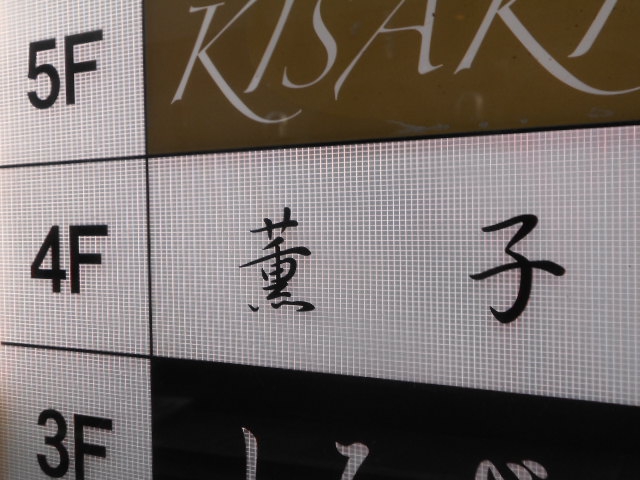 5F KISAKI
4F 薫子
3F